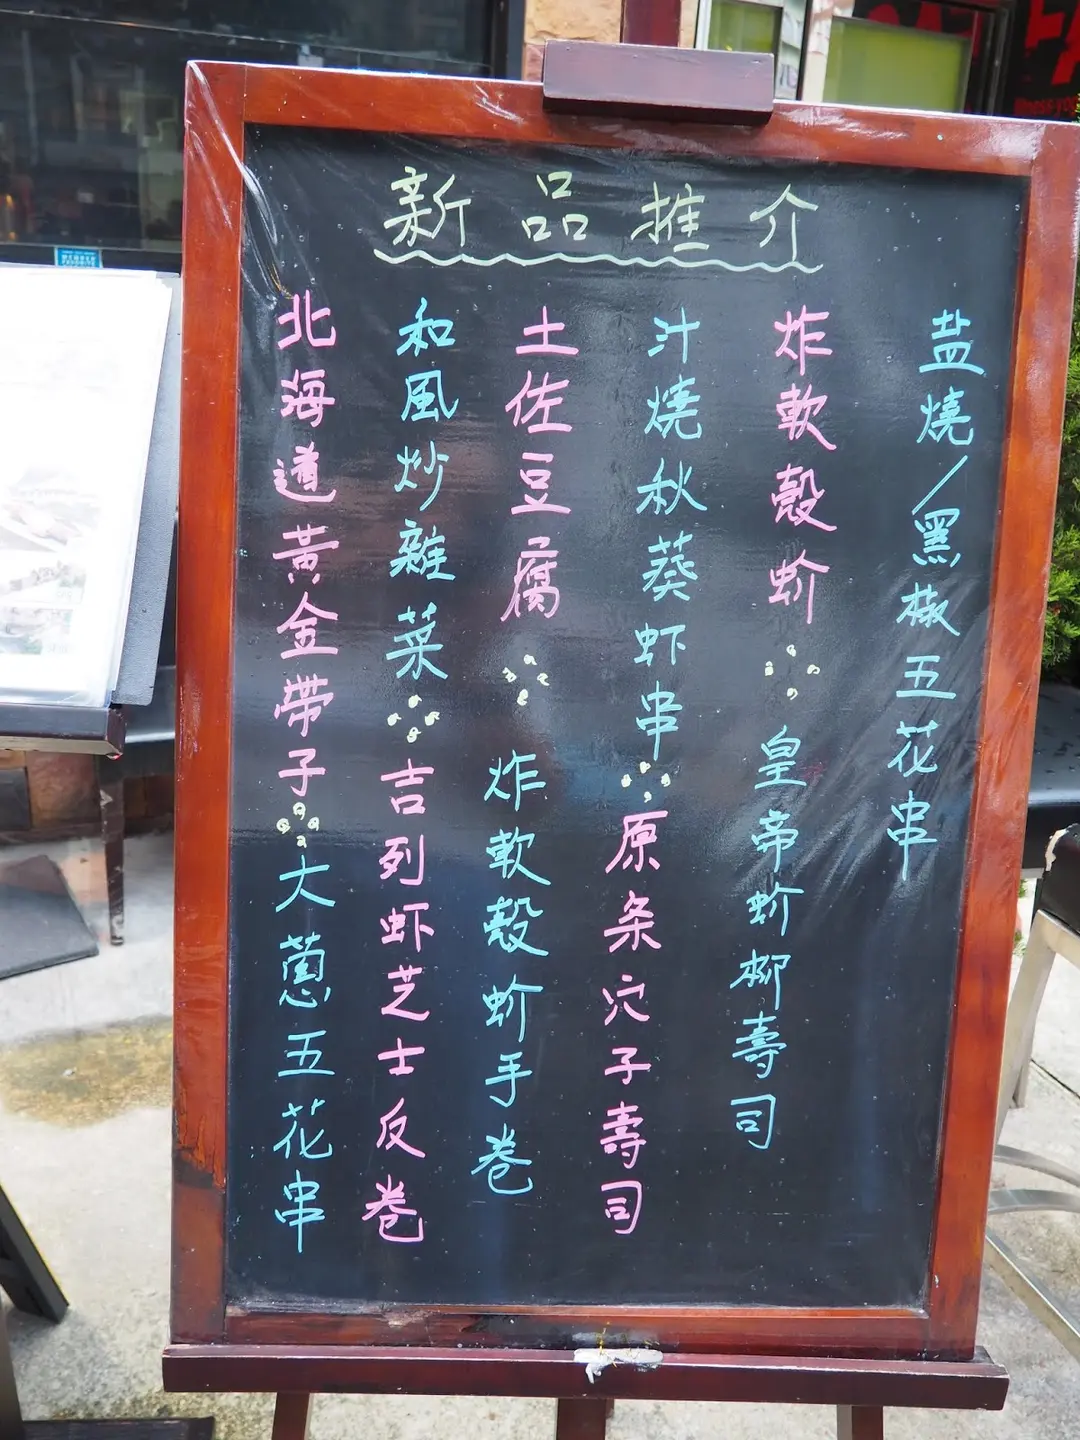 新品推介
盐燒/黑椒五花串
炸軟殼蚧
皇帝蚧柳壽司
汁燒秋葵虾串
原条穴子壽司
土佐豆腐
炸軟殼蚧手卷
和風炒雜菜
吉列虾芝士反卷
北海道黃金帶子
大蔥五花串